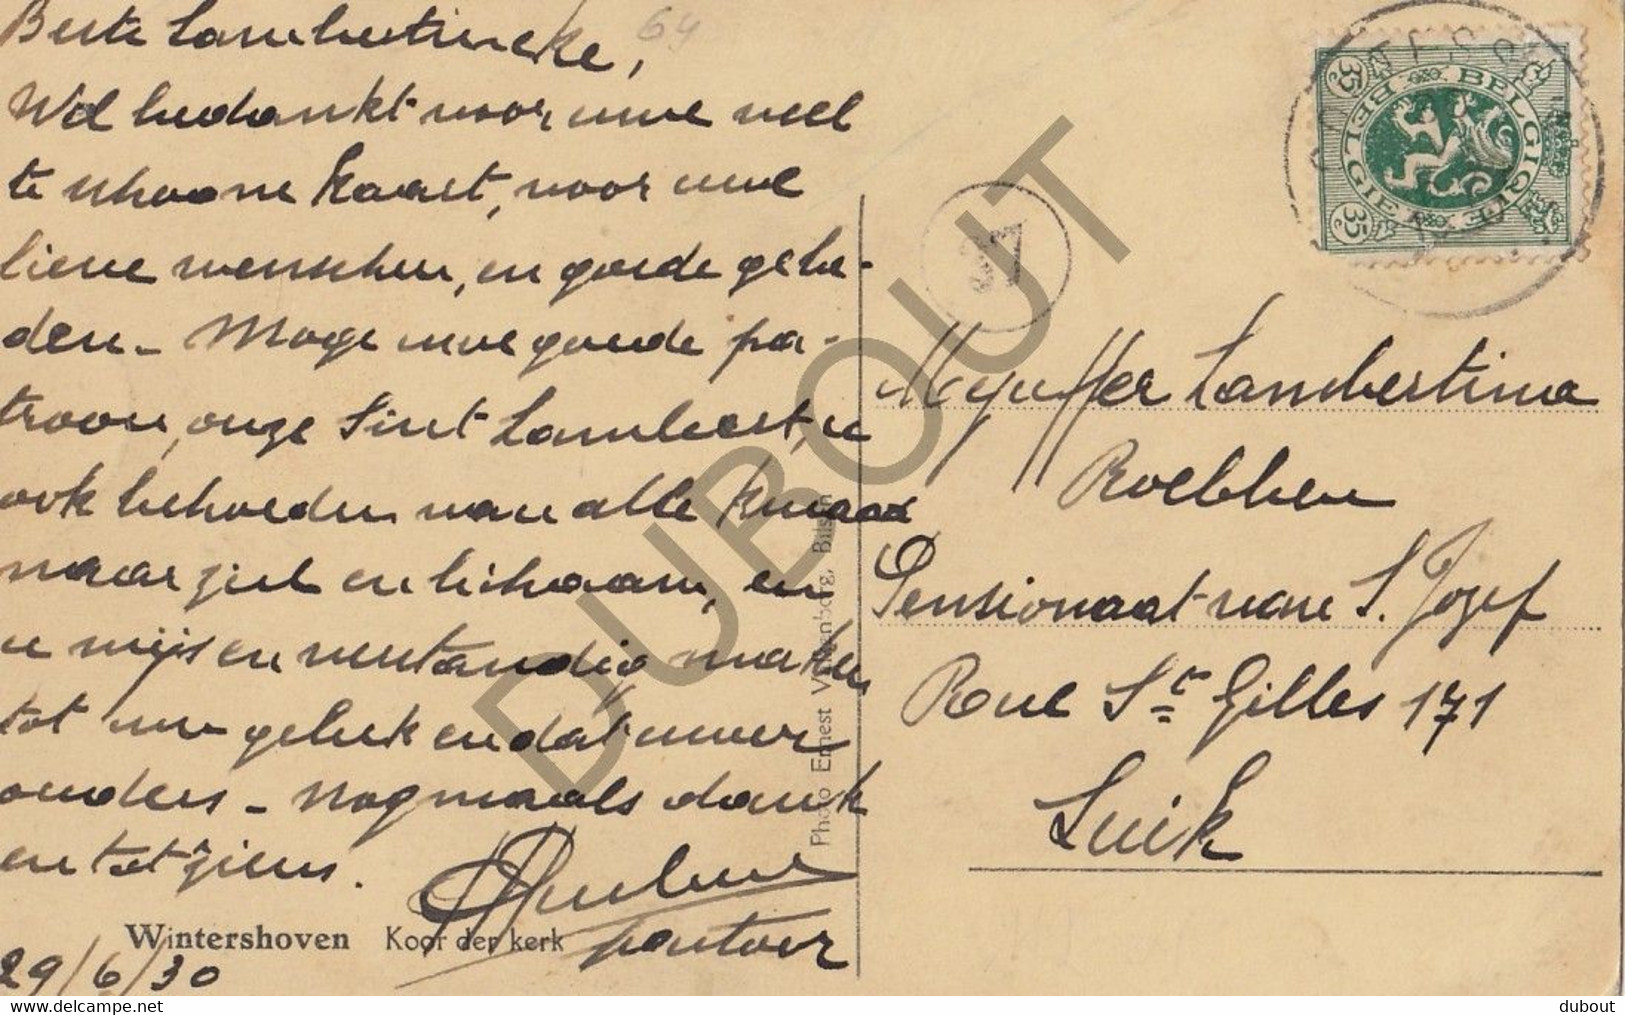 Beste Lambertineke,
Wel bedankt voor uwe veel
te schoone kaart, voor uwe
lieve wenschen, en goede gebe-
den - Moge uwe goede pa-
troon, onze Sint Lambert, u
ook behoeden van alle kwaad
naar ziel en lichaam, en
u wijs en verstandig maken
tot uw geluk en dat uwer
ouders - nogmaals dank
en tot ziens.
pastoor
Wintershoven Koor der kerk
29/6/30
64
Photo Ernest
BELGIQUE
BELGIE
35c
35c
37
Mejuffer Lambertina
Roebben
Pensionaat van S. Jozef
Rue St Gilles 171
Luik
DUBOUT
dubout